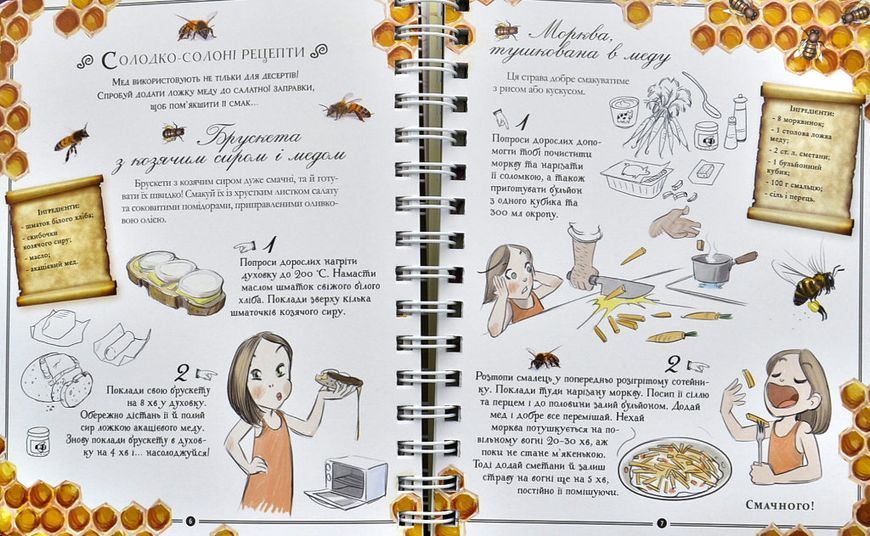 Солодко-солоні рецепти
Мед використовують не тільки для десертів!
Спробуй додати ложку меду до салатної заправки,
щоб пом'якшити її смак...
Брускета
з козячим сиром і медом
Брускети з козячим сиром дуже смачні, та й готу-
вати їх швидко! Смакуй їх із хрустким листком салату
та соковитими помідорами, приправленими оливко-
вою олією.
Інгредієнти:
- шматок білого
хліба;
- скибочки
козячого сиру;
- масло;
- акацієвий мед.
1
Попроси дорослих нагріти
духовку до 200 °C. Намасти
маслом шматок свіжого білого
хліба. Поклади зверху кілька
шматочків козячого сиру.
2
Поклади свою брускету
на 8 хв у духовку.
Обережно дістань її й полий
сир ложкою акацієвого меду.
Знову поклади брускету в духов-
ку на 4 хв і... насолоджуйся!
6
Морква,
тушкована в меду
Ця страва добре смакуватиме
з рисом або кускусом.
Інгредієнти:
- 8 морквинок;
- 1 столова ложка
меду;
- 2 ст. л. сметани;
- 1 бульйонний
кубик;
- 100 г смальцю;
- сіль і перець.
1
Попроси дорослих допо-
могти тобі почистити
моркву та нарізати
її соломкою, а також
приготувати бульйон
з одного кубика та
300 мл окропу.
2
Розтопи смалець у попередньо розігрітому сотейни-
ку. Поклади туди нарізану моркву. Посип її сіллю
та перцем і до половини залий бульйоном. Додай
мед і добре все перемішай. Нехай
морква потушкується на по-
вільному вогні 20-30 хв, аж
поки не стане м'якенькою.
Тоді додай сметани й залиш
страву на вогні ще на 5 хв,
постійно її помішуючи.
Смачного!
7